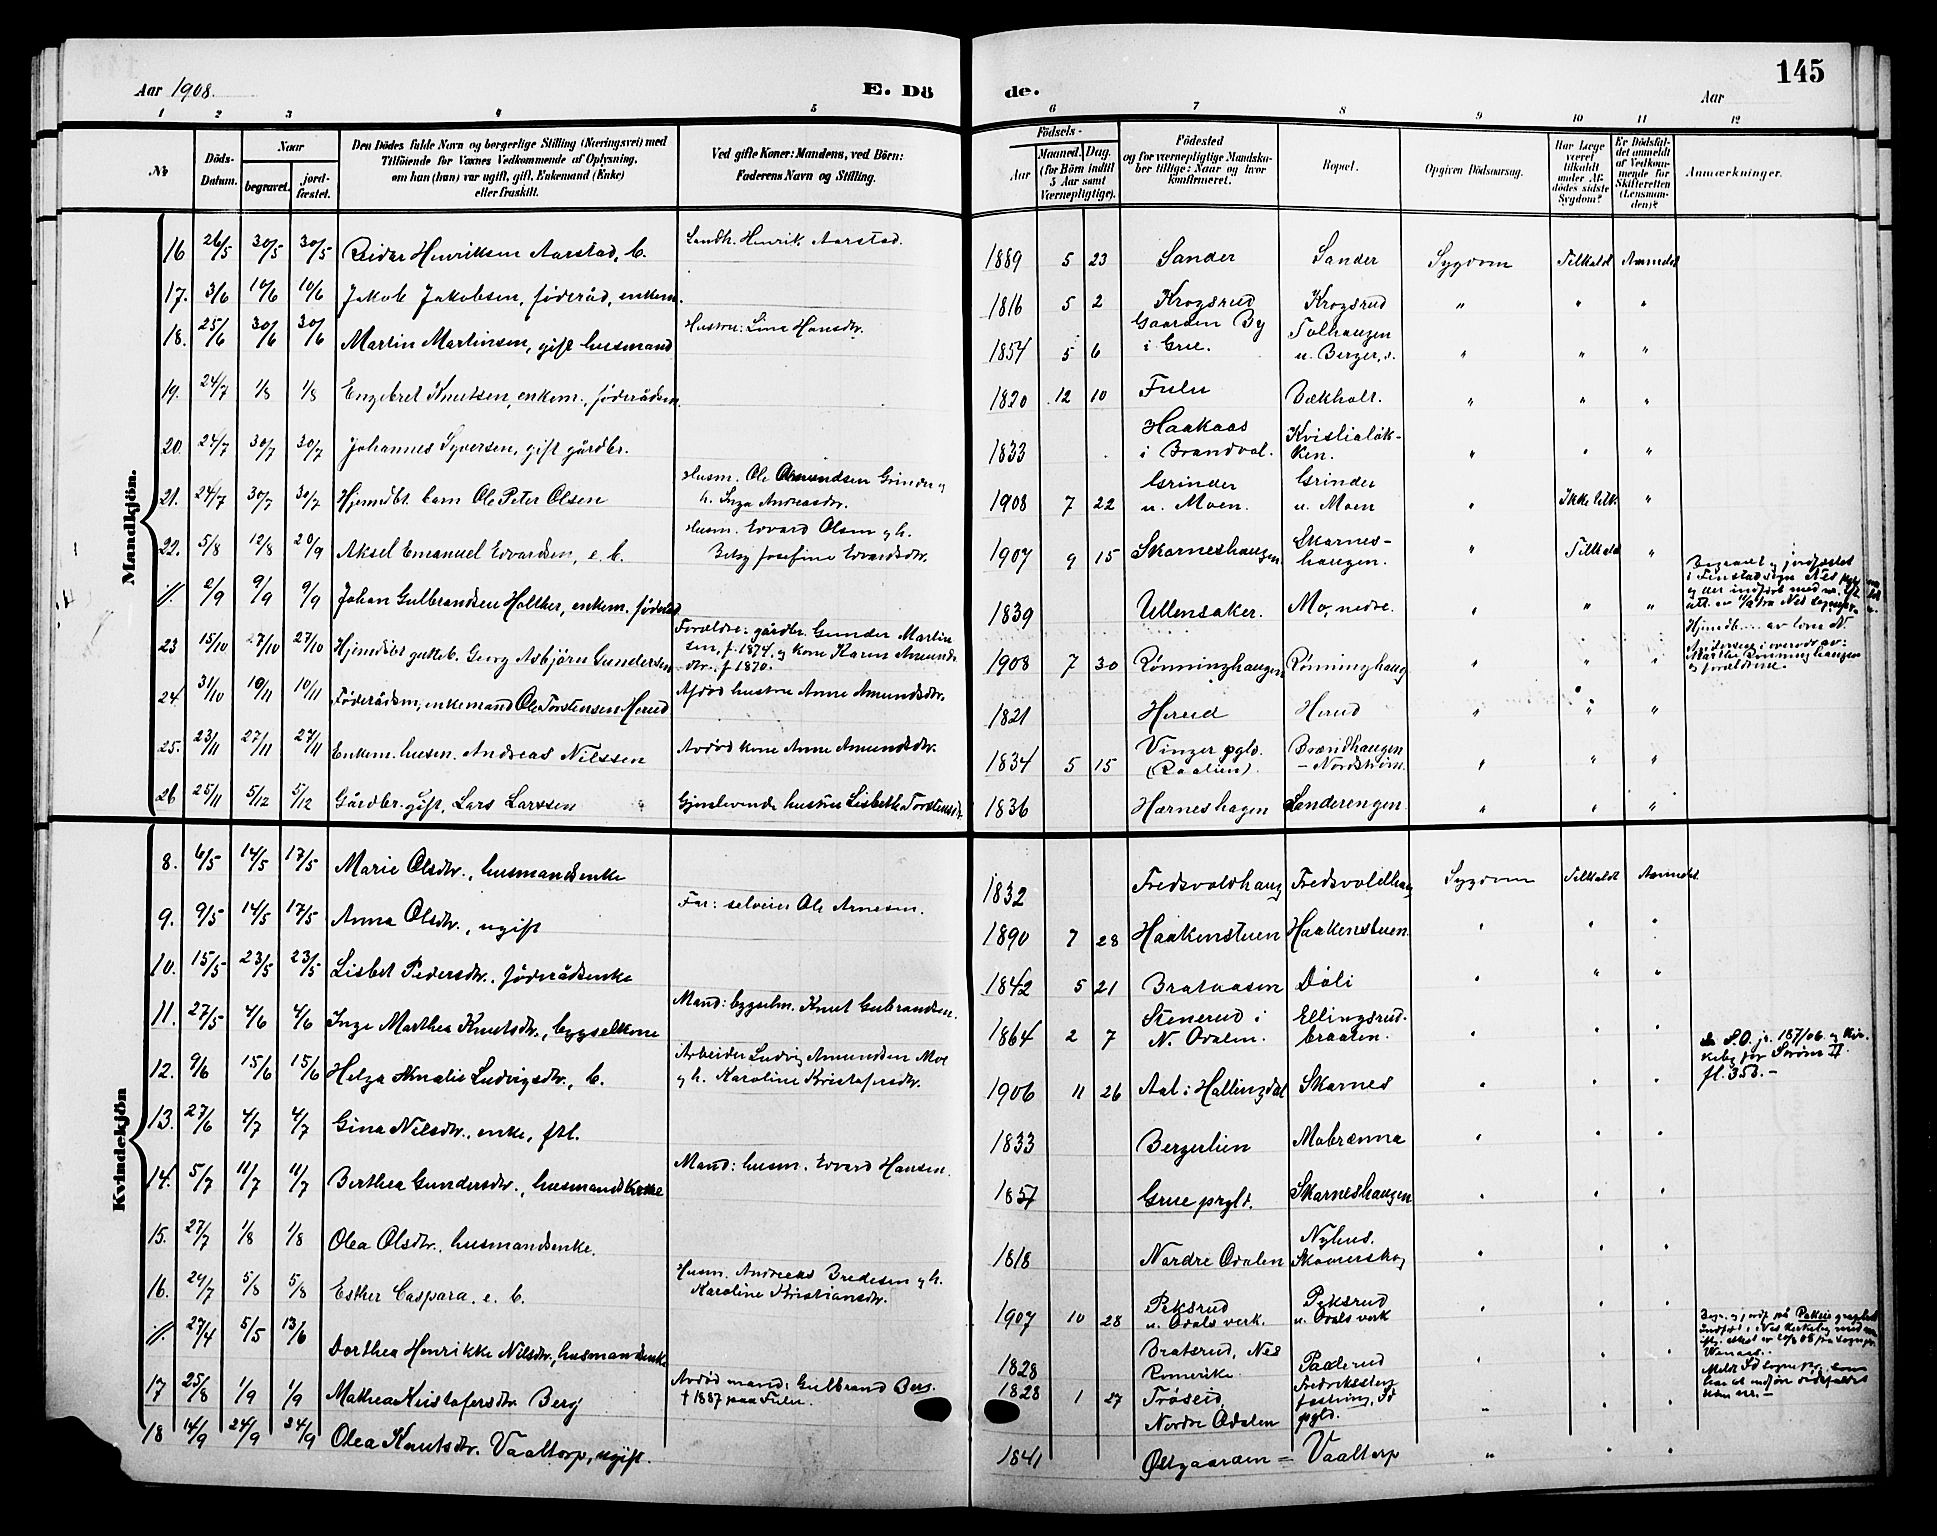 145
Aar 1908. E. Dö
de. Aar
1 2 3 4 5
6 7 8 9 10 11 12
No
Döds-
Datum.
Naar
begravet.
jord-
fæstet.
Den Dödes fulde Navn og borgerlige Stilling (Næringsvei) med
Tilföiende for Voxnes Vedkommende af Oplysning,
om han (hun) var ugift, gift, Enkemand (Enke)
eller fraskilt.
Ved gifte Koner: Mandens, ved Börn:
Faderens Navn og Stilling.
Födsels-
Aar
Maaned. Dag.
(for Börn indtil
5 Aar samt
Værnepligtige).
Födested
og for værnepligtige Mandska-
ber tillige: Naar og hvor
konfirmeret.
Bopæl.
Opgiven Dödsaarsag.
Har Læge
været
tilkaldt
under Af-
dödes sidste
Sygdom?
Er Dödsfal-
det anmeldt
af Vedkom-
mende for
Skifteretten
(Lensman-
den)?
Anmærkninger.
Mandkjön.
16 26/5 30/5 30/5 Reidar Henriksen Aarstad, b. Landh. Henrik Aarstad. 1889 5 23 Sander Sander Sygdom Tilkaldt Anmeldt
17. 3/6 10/6 10/6 Jakob Jakobsen, föderåd, enkem. 1816 5 2 Krogsrud Krogsrud " " "
18. 25/6 30/6 30/6 Martin Martinsen, gift husmand Hustru: Lina Hansdtr. 1854 5 6 Gaarden By
i Grue. Tolhaugen
u. Berger, " " "
19. 24/7 1/8 1/8 Engebret Knutsen, enkem., föderådsm. 1820 12 10 Fulu Bækholt. " " "
20. 24/7 30/7 30/7 Johannes Syversen, gift gårdbr. 1833 Haakaas
i Brandval. Kvistialök-
ken. " " "
21. 24/7 30/7 30/7 Hjemdbt. barn Ole Peter Olsen Husm. Ole Osmundsen Grinder og
h. Inga Andreasdtr. 1908 7 22 Grinder
u. Moen. Grinder
u. Moen " Ikke tilk. "
22. 5/8 12/8 20/9 Aksel Emanuel Edvardsen, e. b. Husm. Edvard Olsen og h.
Betsy Josefine Edvardsdtr. 1907 9 15 Skarneshaugen Skarnes-
haugen. " Tilkaldt "
//. 2/9 9/9 9/9 Johan Gulbrandsen Holther, enkem. föderåd 1839 Ullensaker. Mo, nedre. " " " Begravet og jordfæstet
i Fenstad sogn Nes
23 15/10 27/10 27/10 Hjemdbt gutteb. Georg Asbjörn Gundersen Forældre: gårdbr. Gunder Martin
sen, f. 1874, og kone Karen Amunds
dtr. f. 1870. 1908 7 30 Rønninghaugen Rønninghaug " " " Hjemdb. av
Marthe Rønninghaugen
og forældrene.
24. 31/10 10/11 10/11 Föderådsm, enkemand Ole Torstensen Herud Afdöd hustru Anne Amundsdtr. 1821 Herud Herud " " "
25. 23/11 27/11 27/11 Enkem. husm. Andreas Nilssen Avdöd kone Anne Amundsdtr. 1834 5 15 Vinger pgld.
(Raalien). Brændhaugen
- Nordstrøm. " " "
26 25/11 5/12 5/12 Gårdbr. gift, Lars Larssen Gjenlevende hustru Lisbeth Torstensdtr. 1836 Harneshagen Sanderengen. " " "
Kvindekjön
8. 6/5 14/5 17/5 Marie Olsdtr., husmandsenke 1832 Fredsvoldhaug Fredsvoldhaug Sygdom Tilkaldt Anmeldt
9. 9/5 14/5 17/5 Anna Olsdtr., ugift Far: selveier Ole Arnesen. 1890 7 28 Haakenstuen Haakenstuen. " " "
10. 15/5 23/5 23/5 Lisbet Pedersdtr., föderådsenke 1842 5 21 Brataasen Döli " " "
11. 27/5 4/6 4/6 Inge Marthea Knutsdtr., bygselkone Mand: bygselm. Knut Gubrandsen. 1864 2 7 Stenerud i
N. Odalen. Ellingsrud-
braaten. " " "
12. 9/6 15/6 15/6 Helga Amalie Ludvigsdtr., b. Arbeider Ludvig Amundsen Moe
og h. Karoline Kristofersdtr. 1906 11 26 Aal i Hallingdal Skarnes " " " S.O. jr. 187/06 og kir-
kebog for Strøm II
fl. 35b. -
13. 27/6 4/7 4/7 Gina Nilsdtr., enke, ftl. 1833 Bergerlien Mobrænna " " "
14. 5/7 11/7 11/7 Berthea Gundersdtr., husmandskone Mand: husm. Edvard Hansen. 1857 Grue prgld. Skarneshaugen " " "
15. 27/7 1/8 1/8 Olea Olsdtr., husmandsenke. 1818 Nordre Odalen Nyhus.
" " "
16. 24/7 5/8 5/8 Esther Caspara. e. b. Husm. Andreas Bredesen og h.
Karoline Kristiansdtr. 1907 10 28 Peksrud
u. Odals verk. Peksrud
u. Odals verk " " "
//. 27/4 5/5 13/6 Dorthea Henrikke Nilsdtr., husmandsenke 1828 Bratsrud, Nes
Romerike. Paalerud " " "
17 25/8 1/9 1/9 Mathea Kristofersdtr Berg Avdöd mand: Gulbrand Berg.
† 1887 paa Fulu. 1828 1 27 Trøseid,
Nordre Odalen Fredrikssten
fæstning, Id
pgld. " " "
18 14/9 24/9 24/9 Olea Knutsdtr. Vaaltorp, ugift. 1841 Østgaarden = Vaaltorp " " "